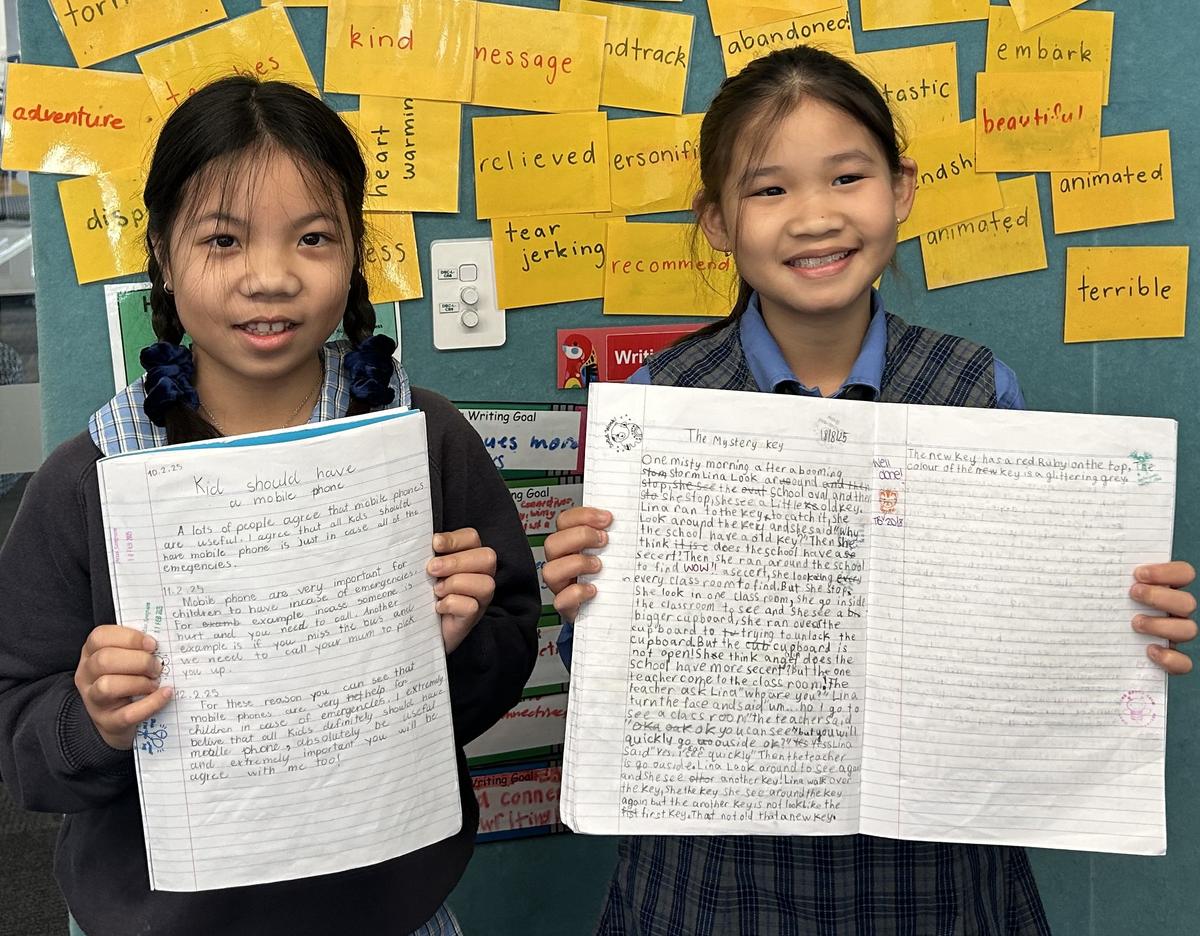 torn
kind
message
ndtrack
abandoned!
embark
adventure
heart warming
relieved
ersonifi
tastic
beautiful
disp
ess
tear
jerking
recommend
ndsh
animated
animated
terrible
Writi
Writing Goal
ues more
Goal
onnectives
Writing Goals
d conne
writing
10.2.25
Kid should have
a mobile phone
A lots of people agree that mobile phones
are useful. I agree that all kids should
have mobile phone is just in case all of the
emegencies.
11.2.25
Mobile phone are very important for
children to have incase of emergencies.
For examb example incase someone is
hurt and you need to call. Another
example is if you miss the bus and
we need to call your mum to pick
you up.
12.2.25
For these reason you can see that
mobile phones are very help for
children in case of emergencies. I extremely
believe that all Kids definitely should have
mobile phone, absolutely be useful
and extremely important you will be
agree with me too!
The Mystery key
18/8/25
One misty morning after a booming
stom storm Lina Look around and then
stop, she see the oval school oval and then
sto she stop, she see a Little old key.
Lina ran to the key to catch it, she
Look around the key and she said "why
the school have a old key?" Then she
think it is c does the school have a se
secert! Then she ran around the school
to find WOW!! a secert, she looking every
every class room to find. But she stop.
She look in one class room, she go inside
the classroom to see and She see a b
bigger cupboard, she ran over the
cupboard to trying to unlock the
cupboard. But the cub cupboard is
not open! Shse think angel does the
school have more secert? But the one
teacher come to the class room! The
teacher ask Lina "who are you?" Lina
turn the face and said "um... no I go to
see a class room" the teacher said
"oka oak ok you can see" but you will
quickly go wo ouside ok?" Yes Yess Lina
said "Yes, I see quickly" Then the teacher
is go ouside. Lina Look around to see again
and she see othor another key! Lina walk over
the key, She the key she see around the key
again but the another key is not look like the
fist first key. That not old that a new key.
Well
done!
The new key has a red Ruby on the top, The
colour of the new key is a glittering grey.